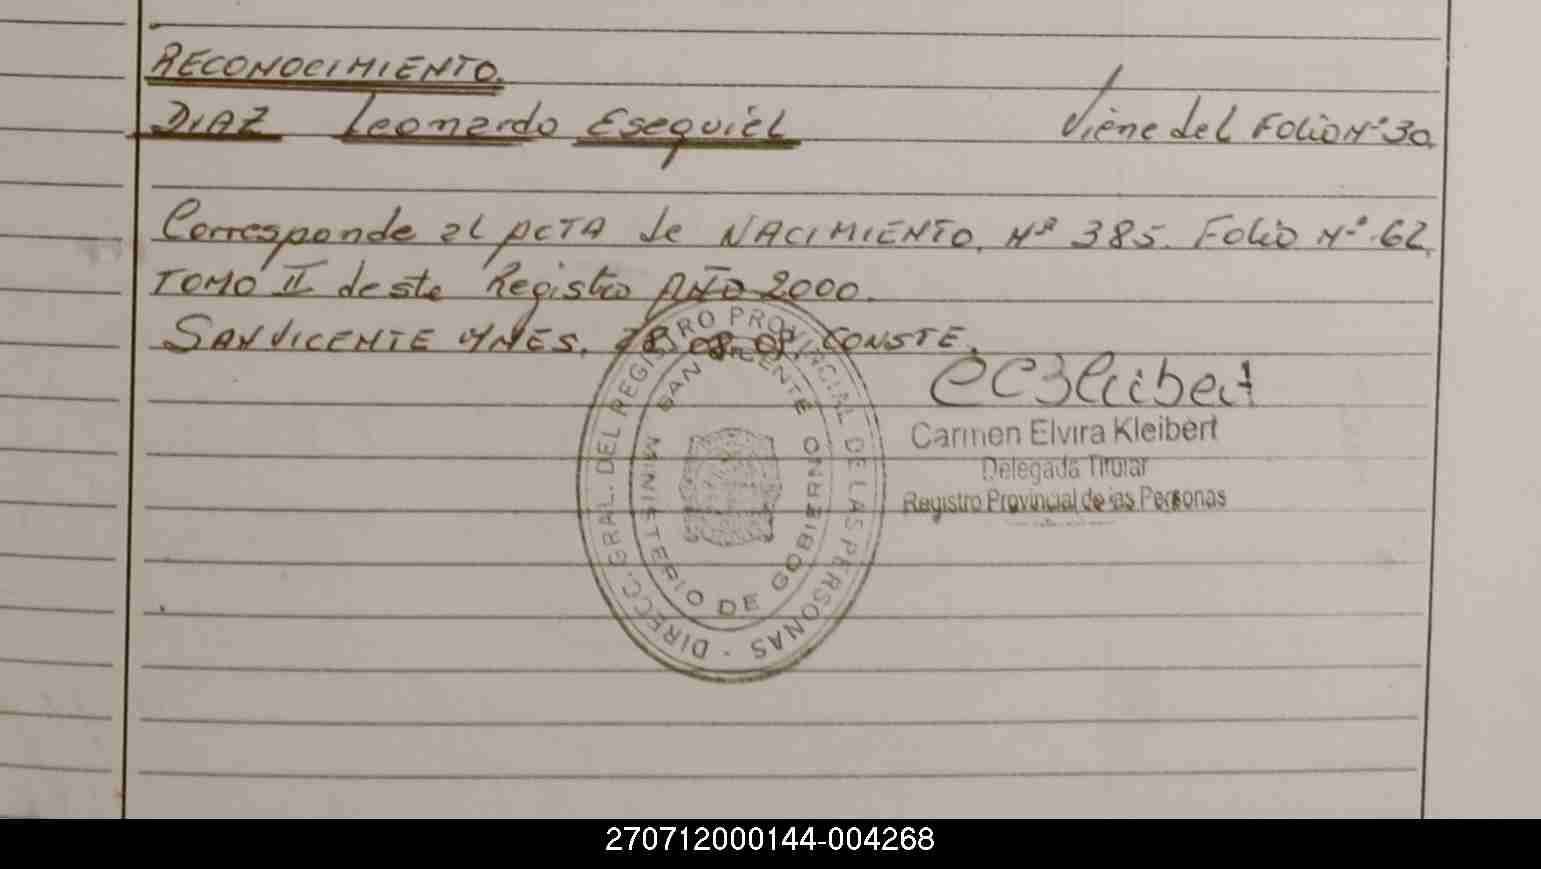 RECONOCIMIENTO.
DIAZ Leonardo Esequiel Viene del Folio Nº 30.
Corresponde al ACTA de NACIMIENTO. Nº 385. Folio Nº 62.
TOMO II de este Registro AÑO 2000.
SAN VICENTE MNES. 28-08-08. CONSTE.
DIRECC. GRAL. DEL REGISTRO PROVINCIAL DE LAS PERSONAS -
SAN VICENTE
MINISTERIO DE GOBIERNO
Carmen Elvira Kleibert
Delegada Titular
Registro Provincial de las Personas
270712000144-004268